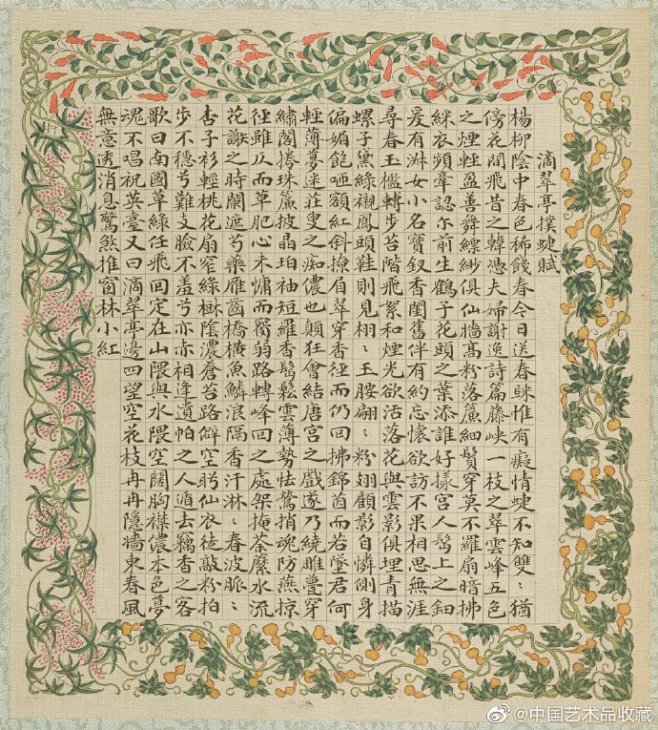 滴翠亭撲蝶賦
楊柳陰中春色稀餞春今日送春歸惟有癡情蝶不知雙〻猶
傍花間飛昔之韓憑夫婦謝逸詩篇藤峽一枝之翠雲峰五色
之煙輕盈善舞縹緲俱仙牆高粉落簾細鬚穿莫不羅扇暗拂
綵衣頻牽認尓前生鶴子花頭之葉添誰好樣宮人髩上之鈿
爰有淋女小名寶釵香閨舊伴有約忘懷欲訪不果相思無涯
尋春玉檻轉步苔階飛絮和煙光欲活落花與雲影俱埋青描
螺子黛綠襯鳳頭鞋則見栩〻玉腰翩〻粉翅顧影自憐側身
偏媚飽咂額紅斜撩眉翠穿香徑而仍回拂錦茵而若墜君何
輕薄蔓迷莊叟之痴儂也顛狂會結唐宮之戲遂乃繞雕甍穿
繡閣捲珠簾披晶珀袖短羅香髻鬆雲薄勢怯驚捎魂防燕掠
徑雖仄而草肥心未慵而蠲弱路轉峰回之處架掩荼蘼水流
花謝之時闌遮芍藥雁齒橋橫魚鱗浪隔香汗淋〻春波脈〻
杏子衫輕桃花扇窄綠樹陰濃蒼苔路僻空躬仙衣徒敲粉拍
步不穩兮難支臉不羞兮亦赤相逢遺帕之人遁去竊香之客
歌曰南國草綠任飛回定在山隈與水隈空闊胸襟儂本色夢
魂不唱祝英臺又曰滴翠亭邊四望空花枝冉冉隱牆東春風
無意透消息驚煞推窗林小紅
@中国艺术品收藏